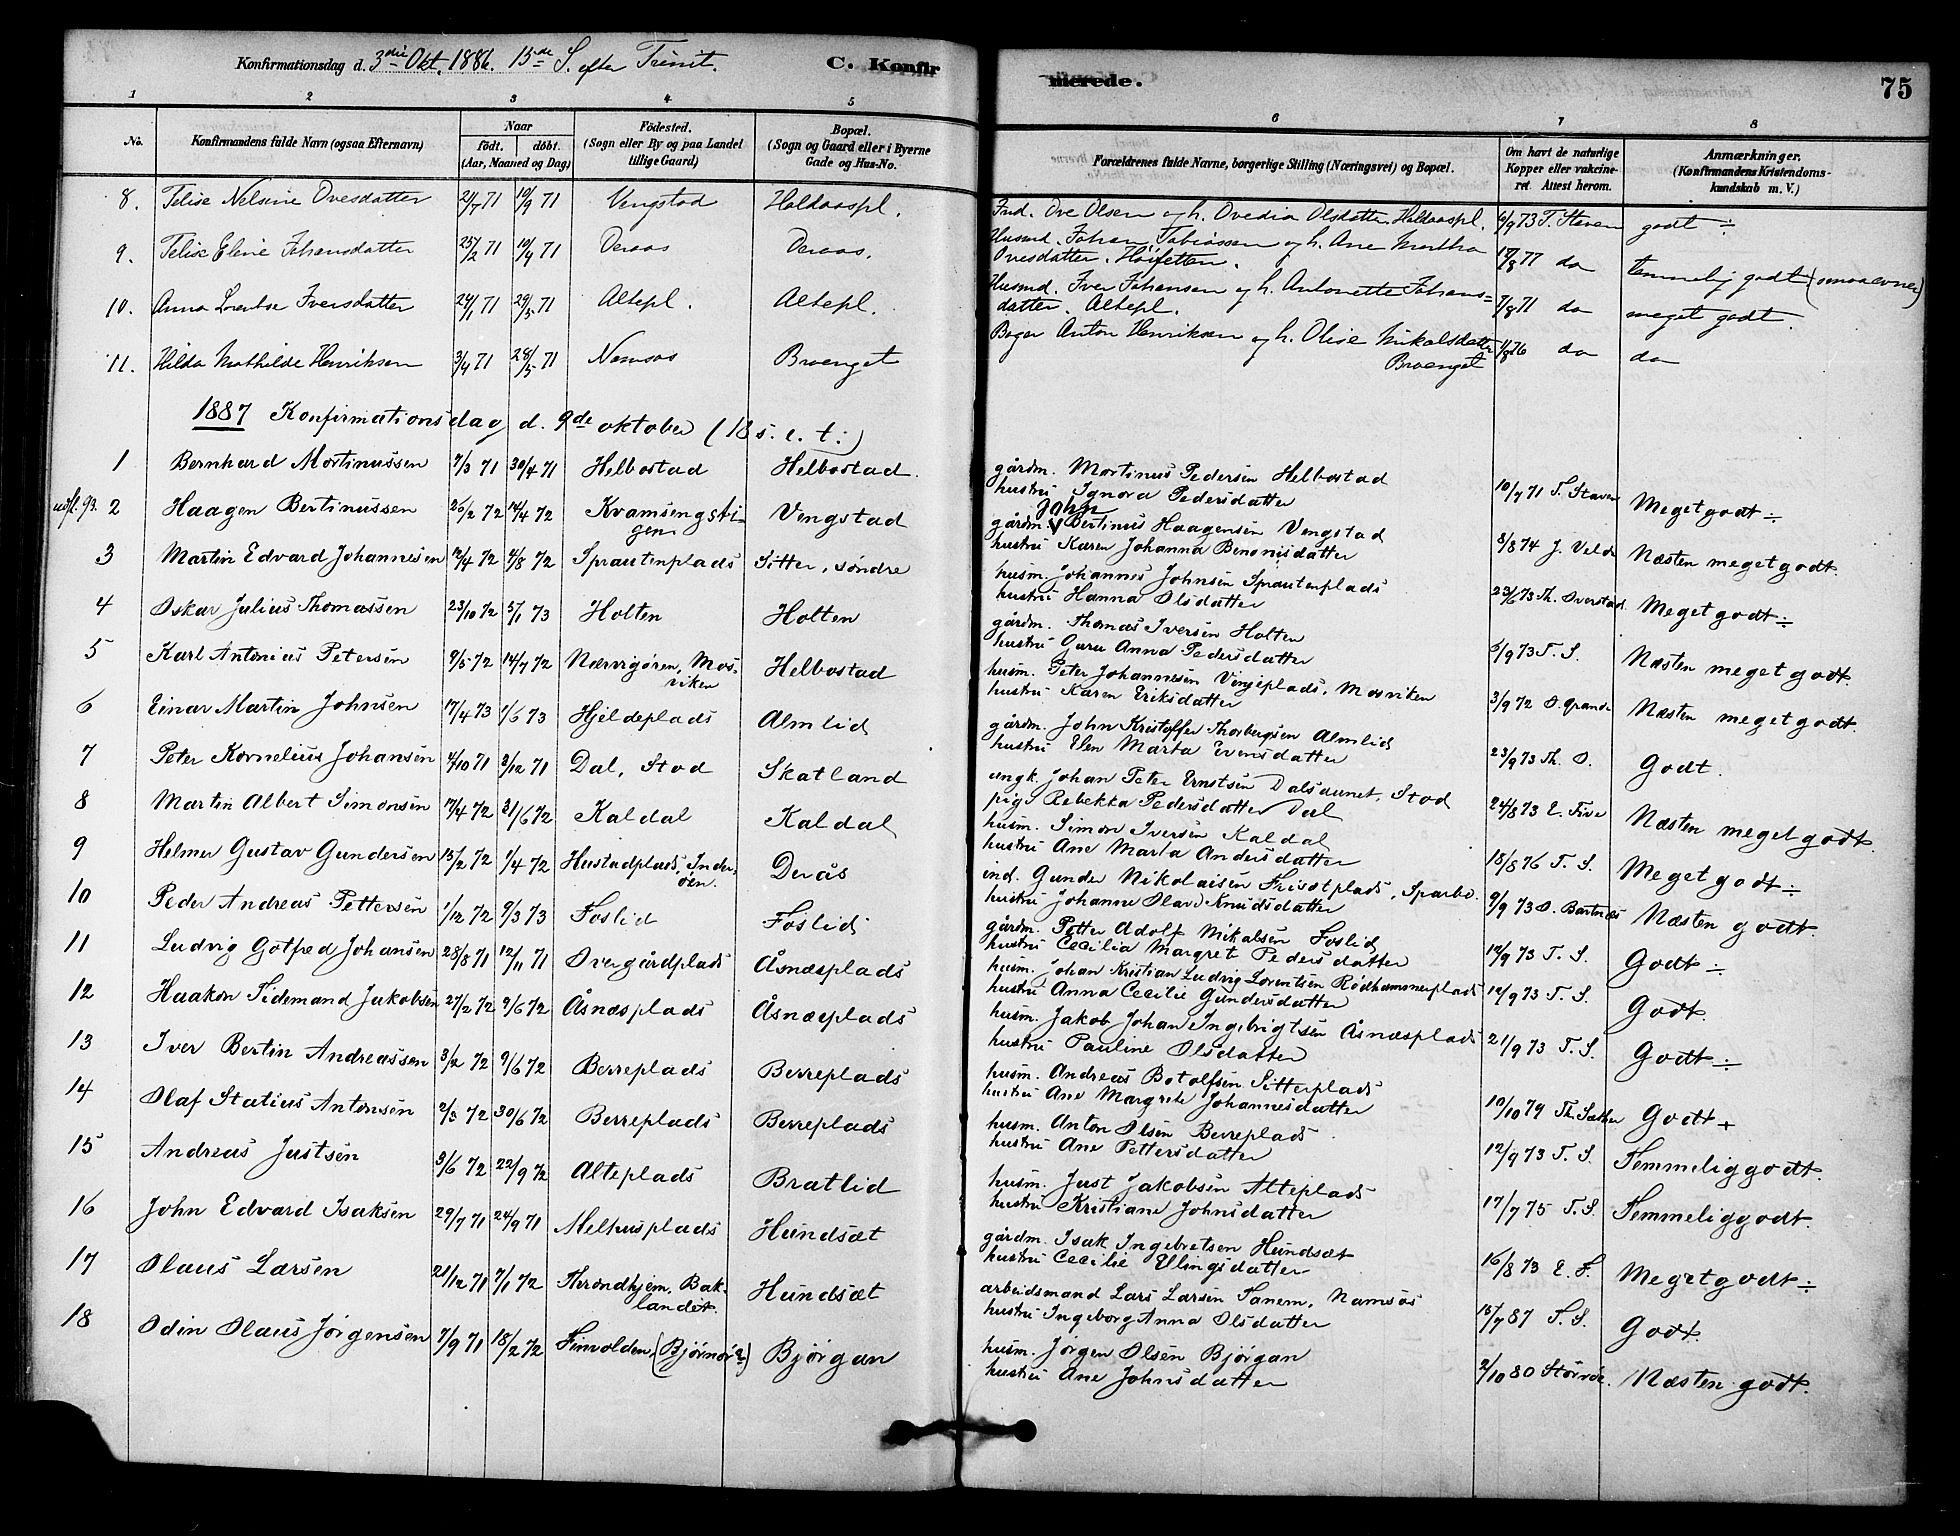 Konfirmationsdag d. 3die Okt. 1886. 15de S. efter Trinit.
C. Konfirmerede.
75
1 2 3 4 5 6 7 8
No. Konfirmandens fulde Navn (ogsaa Efternavn) Naar født. døbt. (Aar, Maaned og Dag) Fødested. (Sogn eller By og paa Landet tillige Gaard) Bopæl. (Sogn og Gaard eller i Byerne Gade og Hus-No. Forældrenes fulde Navne, borgerlige Stilling (Næringsvei) og Bopæl. Om havt de naturlige Kopper eller vakcineret. Attest herom. Anmærkninger. (Konfirmandens Kristendomskundskab m. V.)
8. Telise Nelsine Ovesdatter 21/7 71 10/9 71 Vengstad Haldaaspl. Ind. Ove Olsen og h. Ovedia Olsdatter Haldaaspl. 6/9 73 T. Staven godt ÷
9. Telise Elene Johansdatter 25/2 71 10/4 71 Deraas Deraas. Husmd. Johan Tobiassen og h. Ane Martha
Ovesdatter. 17/8 77 do temmelig godt (smaa evner)
10. Anna Lorentse Iversdatter 24/1 71 29/5 71 Altepl. Altepl. Husmd. Iver Johansen og h. Antonette Johans=
datter. Altepl. 7/8 71 do meget godt.
11. Hilda Mathilde Henriksen 3/4 71 28/5 71 Namsos Braenget Bager Anton Henriksen og h. Olise Mikalsdatter
Braenget 1/8 76 do do
1887 Konfirmationsdag d. 9de oktober (18 s. e. t:)
1 Bernhard Martinussen 7/3 71 30/4 71 Helbostad Helbostad. gårdm. Martinus Pedersen Helbostad
hustru Ignora Pedersdatter 10/7 71 T. Staven Meget godt ÷
udfl. 93. 2 Haagen Bertinussen 26/2 72 14/4 72 Kvamsengstigen Vengstad gårdm. John Bertinus Haagensen Vengstad
hustru Karen Johanna Benonisdatter 8/8 74 J. Velde Næsten meget godt.
3 Martin Edvard Johannesen 12/4 72 4/8 72 Sprautenplads Sitter, søndre husm. Johannes Johnsen Sprautenplads
hustru Hanna Olsdatter 23/6 73 Th. Overstad Meget godt ÷
4 Oskar Julius Thomassen 23/10 72 5/1 73 Holten Holten gårdm. Thomas Iversen Holten
hustru Guru Anna Pedersdatter 5/9 73 T. S. Næsten meget godt.
5 Karl Antonius Petersen 9/5 72 14/7 72 Nærvigøren, Mosviken Helbostad husm. Peter Johannesen Vinjeplads, Mosviken
hustru Karen Eriksdatter 3/9 72 O. Grande Næsten meget godt.
6 Einar Martin Johnsen 17/4 73 1/6 73 Hjeldeplads Almlid gårdm. John Kristoffer Thorbergsen Almlid
hustru Elen Marta Evensdatter 23/9 73 Th. O. Godt.
7 Peter Kornelius Johansen 4/10 71 3/12 71 Dal, Stod Skatland ungk. Johan Peter Ernstsen Dalsaunet, Stod
pige Rebekka Pedersdatter Dal 24/8 73 E. Five Næsten meget godt.
8 Martin Albert Simonsen 17/4 72 31/6 72 Kaldal Kaldal husm. Simon Iversen Kaldal
hustru Ane Marta Andersdatter 18/8 76 T. S. Meget godt ÷
9 Helmer Gustav Gundersen 13/2 72 1/4 72 Hustadplads, Inderøen. Derås ind. Gunder Nikolaisen Friset­plads, Sparbo.
hustru Johanne Olava Knudsdatter 9/9 73 O. Bartnes Næsten godt.
10 Peder Andreas Pettersen 1/12 72 9/3 73 Foslid Foslid gårdm. Petter Adolf Mikalsen Foslid
hustru Cecilia Margret Pedersdatter 12/9 73 T. S. Godt ÷
11 Ludvig Gotfred Johansen 28/8 71 12/11 71 Overgårdplads Åsnæsplads husm. Johan Kristian Ludvig Lorentsen Rødhammerplads
hustru Anna Cecilie Gundersdatter 12/9 73 T. S. Godt.
12 Haakon Sidemand Jakobsen 27/2 72 9/6 72 Åsnæsplads Åsnæsplads husm. Jakob Johan Ingebrigtsen Åsnæsplads
hustru Pauline Olsdatter 21/9 73 T. S. Godt ÷
13 Iver Bertin Andreassen 3/2 72 9/6 72 Berreplads Berreplads husm. Andreas Botolfsen Sitterplads
hustru Ane Margrete Johannesdatter 10/10 74 Th. Sæther Godt +
14 Olaf Statius Antonsen 2/3 72 30/6 72 Berreplads Berreplads husm. Anton Olsen Berreplads
hustru Ane Pettersdatter 12/9 73 T. S. Temmelig godt.
15 Andreas Justsen 3/6 72 22/9 72 Alteplads Bratlid husm. Just Jakobsen Alteplads
hustru Kristiane Johnsdatter 17/7 75 T. S. Temmelig godt.
16 John Edvard Isaksen 29/7 71 24/9 71 Melhusplads Hundsæt gårdm. Isak Ingebretsen Hundsæt
hustru Cecilie Ellingsdatter 16/8 73 E. F. Meget godt ÷
17 Olaus Larsen 21/12 71 7/1 72 Throndhjem, Baklandet Hundsæt arbeidsmand Lars Larsen Sanem, Namsos
hustru Ingeborg Anna Olsdatter 15/7 87 T. S. Godt.
18 Odin Olaus Jørgensen 7/9 71 18/2 72 Finvolden, (Bjørnør) Bjørgan husm. Jørgen Olsen Bjørgan
hustru Ane Johnsdatter 2/10 80 Næsten godt.